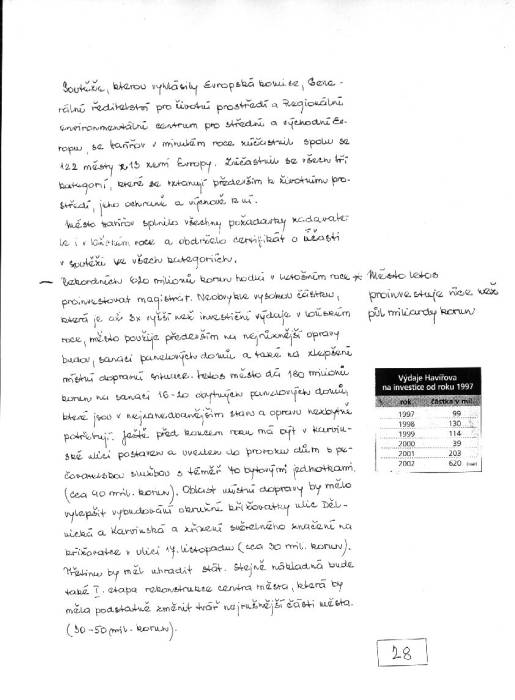 Soutěže, kterou vyhlásily Evropská komise, Gene-
rální ředitelství pro životní prostředí a Regionální
environmentální centrum pro střední a východní Ev-
ropu, se Havířov v minulém roce zúčastnil spolu se
122 městy z 13 zemí Evropy. Zúčastnil se všech tří
kategorií, které se vztahují především k životnímu pro-
středí, jeho ochraně a výchově k ní.
Město Havířov splnilo všechny požadavky zadavate-
le i v loňském roce a obdrželo certifikát o účasti
v soutěži ve všech kategoriích.
– Rekordních 620 milionů korun hodlá v letošním roce
proinvestovat magistrát. Neobvykle vysokou částku,
která je až 3x vyšší než investiční výdaje v loňském
roce, město použije především na nejrůznější opravy
budov, sanaci panelových domů a také na zlepšení
místní dopravní situace. Letos město dá 180 milionů
korun na sanaci 16-20 obytných panelových domů,
které jsou v nejzanedbanějším stavu a opravu nezbytně
potřebují. Ještě před koncem roku má být v Karvin-
ské ulici postaven a uveden do provozu dům s pe-
čovatelskou službou s téměř 40 bytovými jednotkami.
(cca 40 mil. korun). Oblast místní dopravy by mělo
vylepšit vybudování okružní křižovatky ulic Děl-
nická a Karvinská a zřízení světelného značení na
křižovatce v ulici 17. listopadu (cca 30 mil. korun).
Třetinu by měl uhradit stát. Stejně nákladná bude
také I. etapa rekonstrukce centra města, která by
měla podstatně změnit tvář nejrušnější části města.
(30-50 mil. korun).
Město letos
proinvestuje více než
půl miliardy korun
Výdaje Havířova
na investice od roku 1997
rok částka v mil.
1997 99
1998 130
1999 114
2000 39
2001 203
2002 620
28